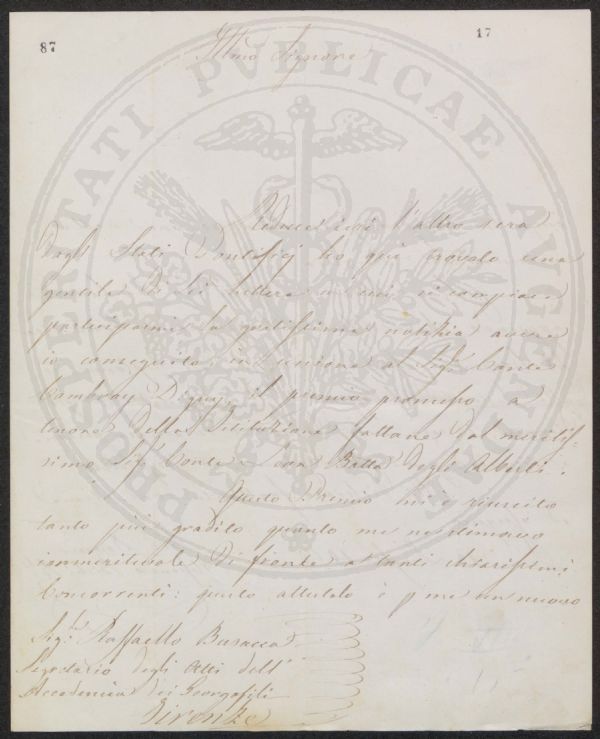 87
17
Illmo Signore
Reduce ieri l'altro sera
dagli Stati Pontificj ho qui trovato una
gentile di Lei lettera in cui si compiace
parteciparmi la gratissima notizia avere
io conseguito, in unione al Sigr. Conte
Cambray Digny, il premio promesso a
tenore della Istituzione fattane dal meritis-
simo Sigr Conte Gio: Batta degli Alberti.
Questo Premio mi è riuscito
tanto più gradito quanto me ne stimavo
immeritevole di fronte a tanti chiarissimi
Concorrenti: questo attestato è p me un nuovo
Sigr. Raffaello Busacca
Segretario degli Atti dell'
Accademia dei Georgofili
Firenze
PROSPERITATI PUBLICAE AUGENDAE